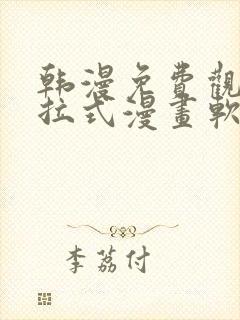 韩漫免費觀
拉式漫畫軟
李荔付